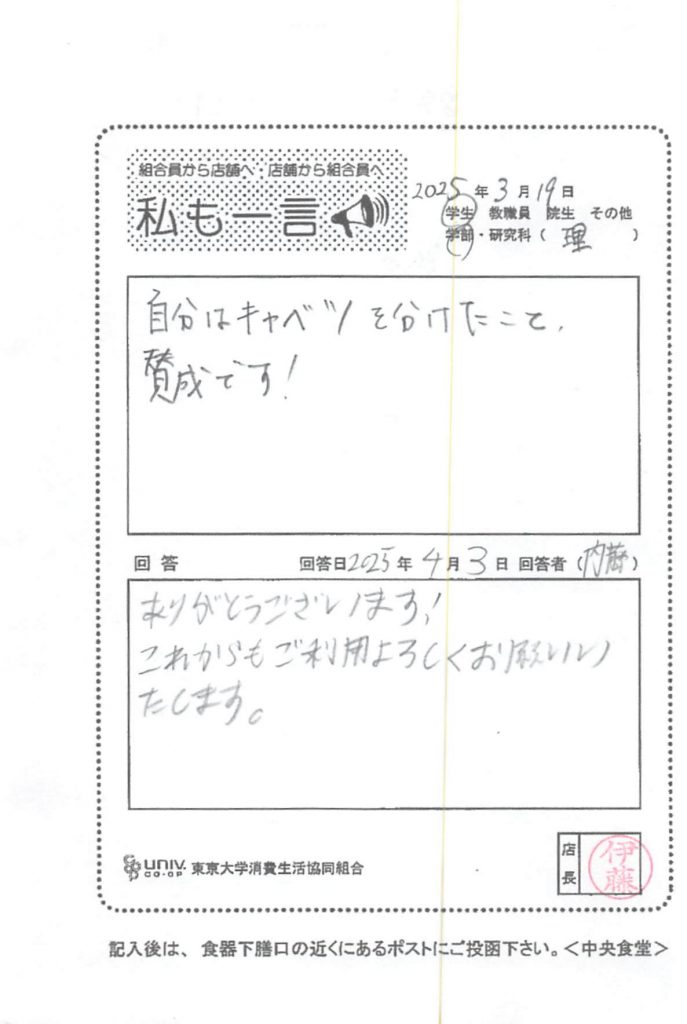 組合員から店舗へ・店舗から組合員へ
私も一言
2025年3月19日
学生 教職員 院生 その他
学部・研究科（ 理 ）
自分はキャベツを分けたこと、
賛成です！
回答 回答日2025年4月3日 回答者（内藤）
ありがとうございます！
これからもご利用よろしくお願いい
たします。
UNIV. CO-OP 東京大学消費生活協同組合
店長 伊藤
記入後は、食器下膳口の近くにあるポストにご投函下さい。＜中央食堂＞